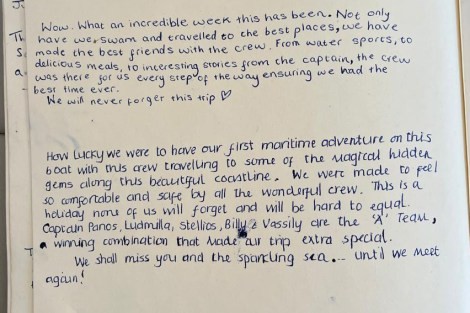 Wow. What an incredible week this has been. Not only
have we swam and travelled to the best places, we have
made the best friends with the crew. From water sports, to
delicious meals, to interesting stories from the captain, the crew
was there for us every step of the way ensuring we had the
best time ever.
We will never forget this trip ♡
How lucky we were to have our first maritime adventure on this
boat with this crew travelling to some of the magical hidden
gems along this beautiful coastline. We were made to feel
so comfortable and safe by all the wonderful crew. This is a
holiday none of us will forget and will be hard to equal.
Captain Panos, Ludmulla, Stellios, Billy & Vassily are the 'A' Team,
a winning combination that made our trip extra special.
We shall miss you and the sparkling sea.... until we meet
again!